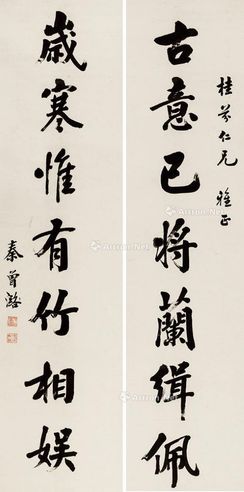 桂芬仁兄 雅正
古意已將蘭緝佩
歲寒惟有竹相娛
秦曾潞